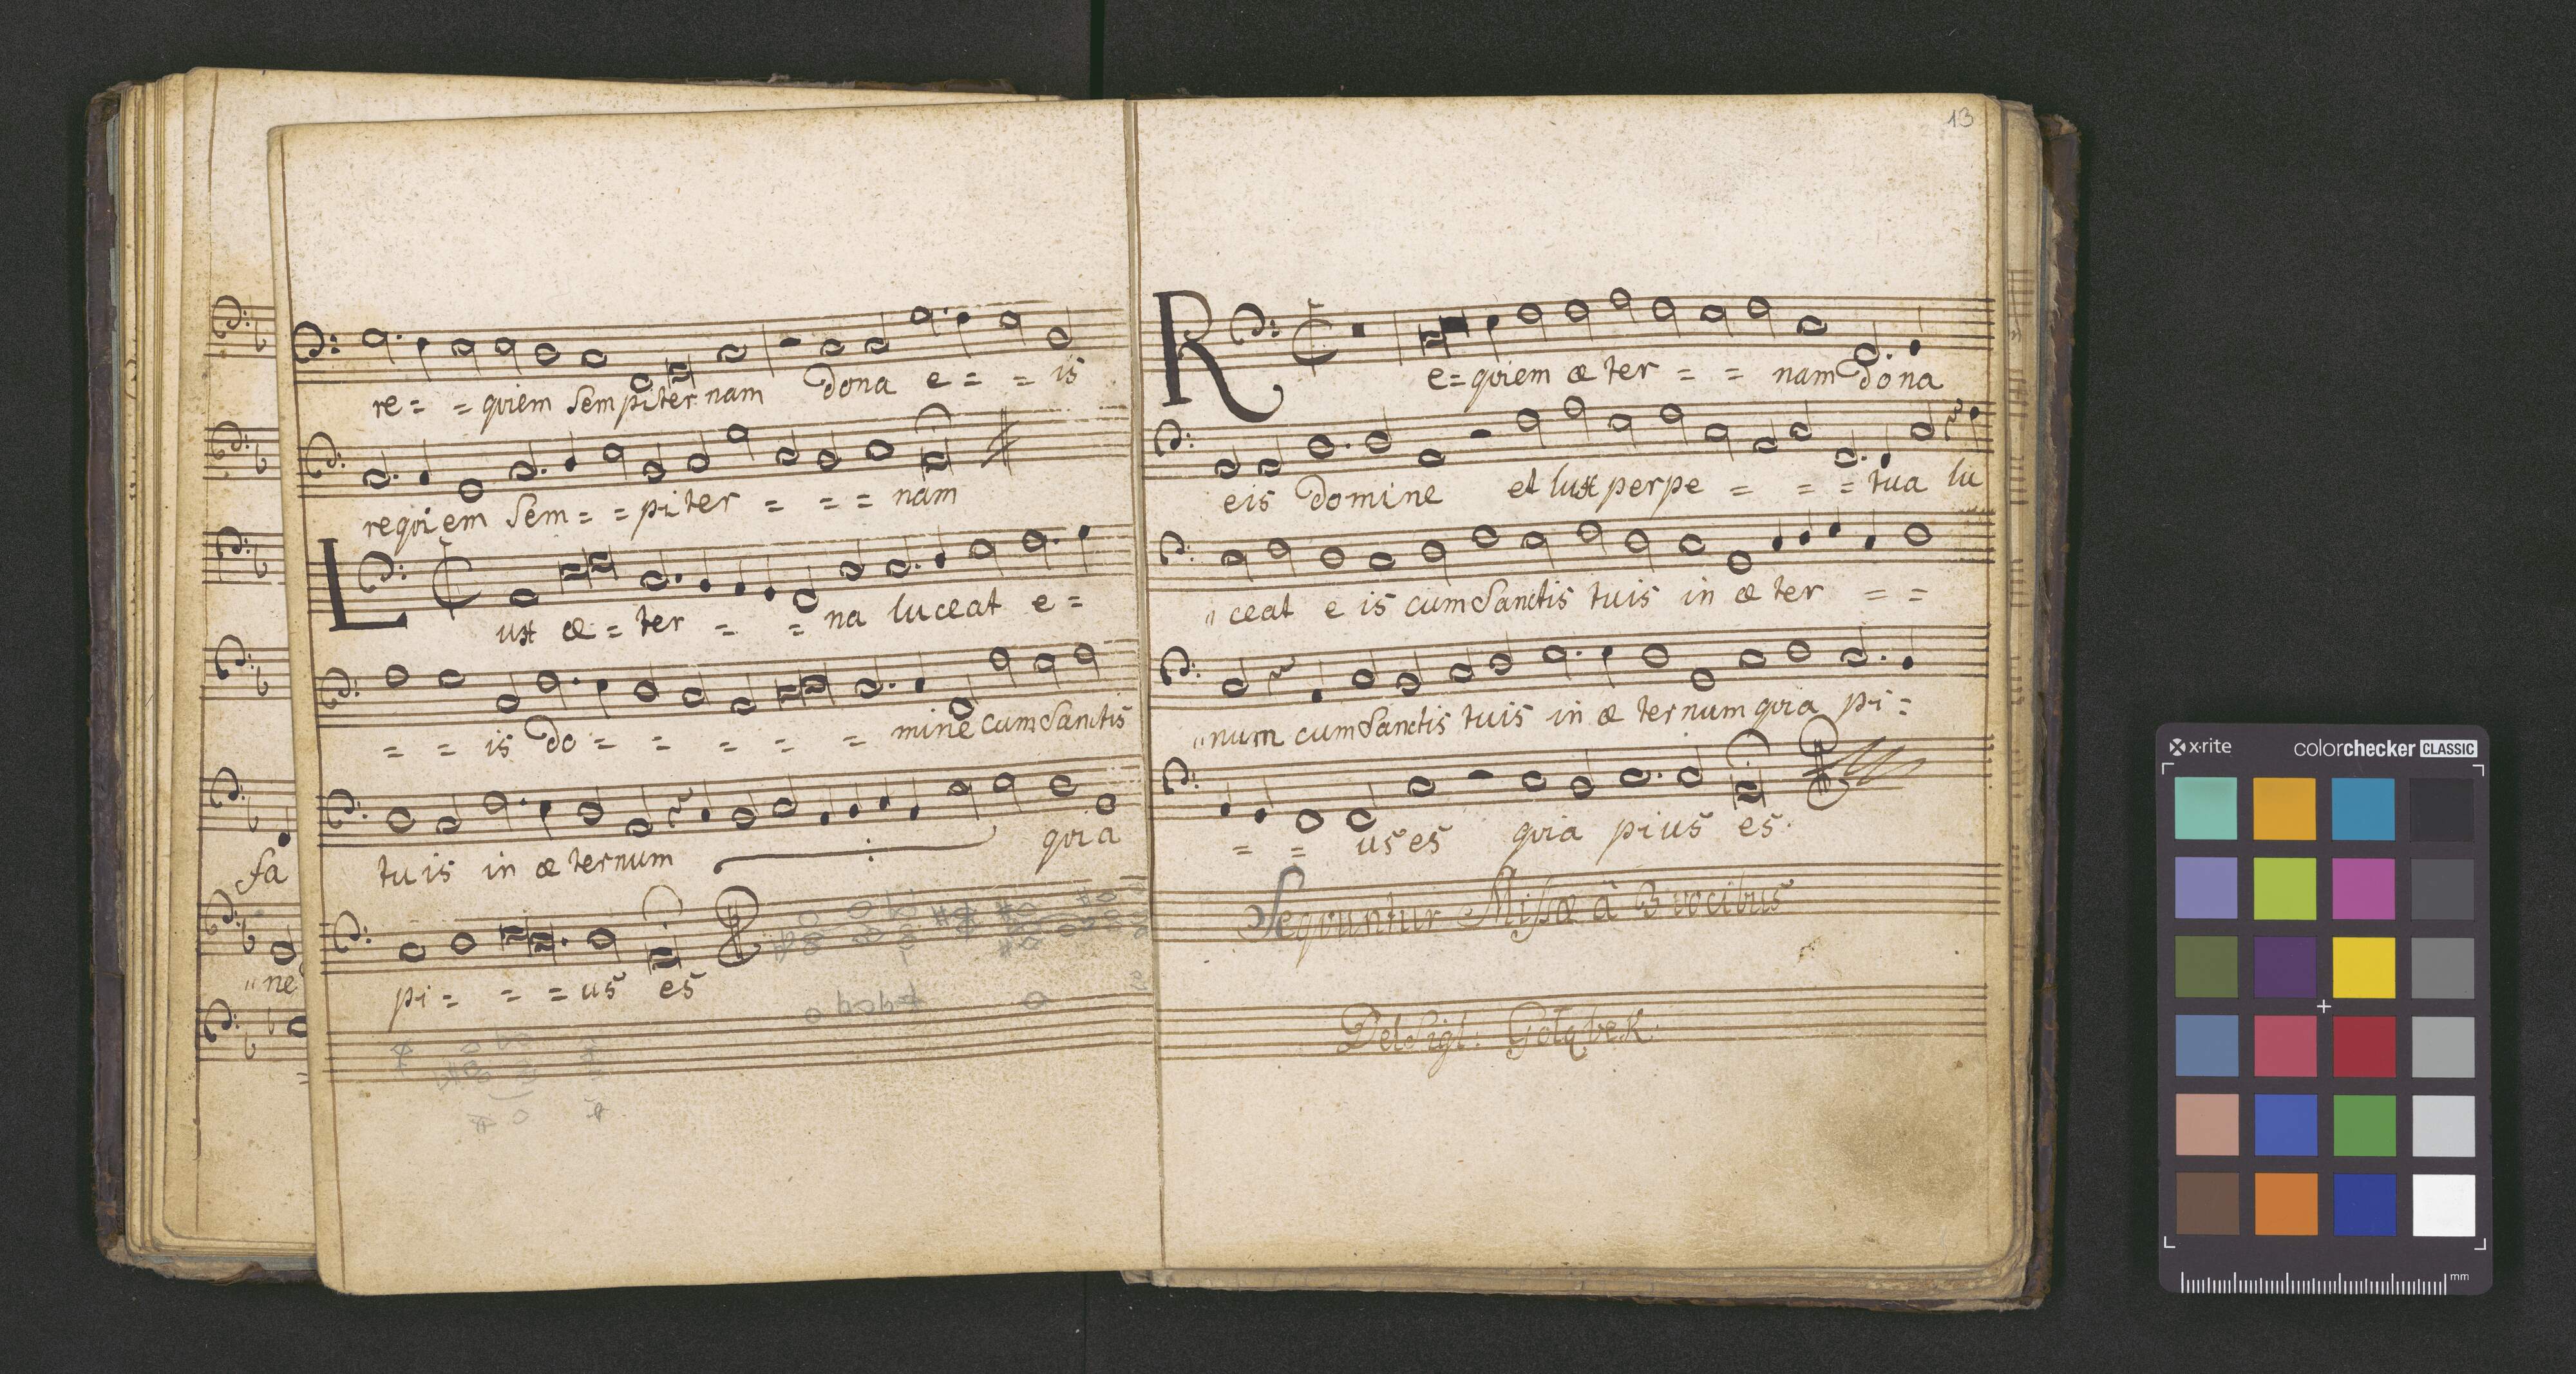 fa
"ne
re= =quiem Sempiternam dona e= = is
requiem Sem= =piter = = = nam
Lux æ= ter = = na luceat e=
= = is Do= = = = = mine cum Sanctis
tuis in æternum quia
pi= = = us es
13
Re=quiem æter = = nam dona
eis Domine et lux perpe = = = tua lu
"ceat eis cum Sanctis tuis in æter = =
"num cum Sanctis tuis in æternum quia pi=
= = us es quia pius es.
Sequuntur Missæ à 3 vocibus
Del Sigl: Gołąbek.
x-rite colorchecker CLASSIC
mm